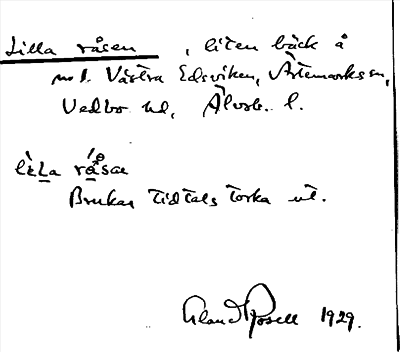 Lilla råsen, liten bäck å
m l. Västra Edsviken, Ärtemarks sn,
Vedbo hd, Älvsb. l.
lìlla råsae
Brukar tidtals torka ut.
Rosell 1929.